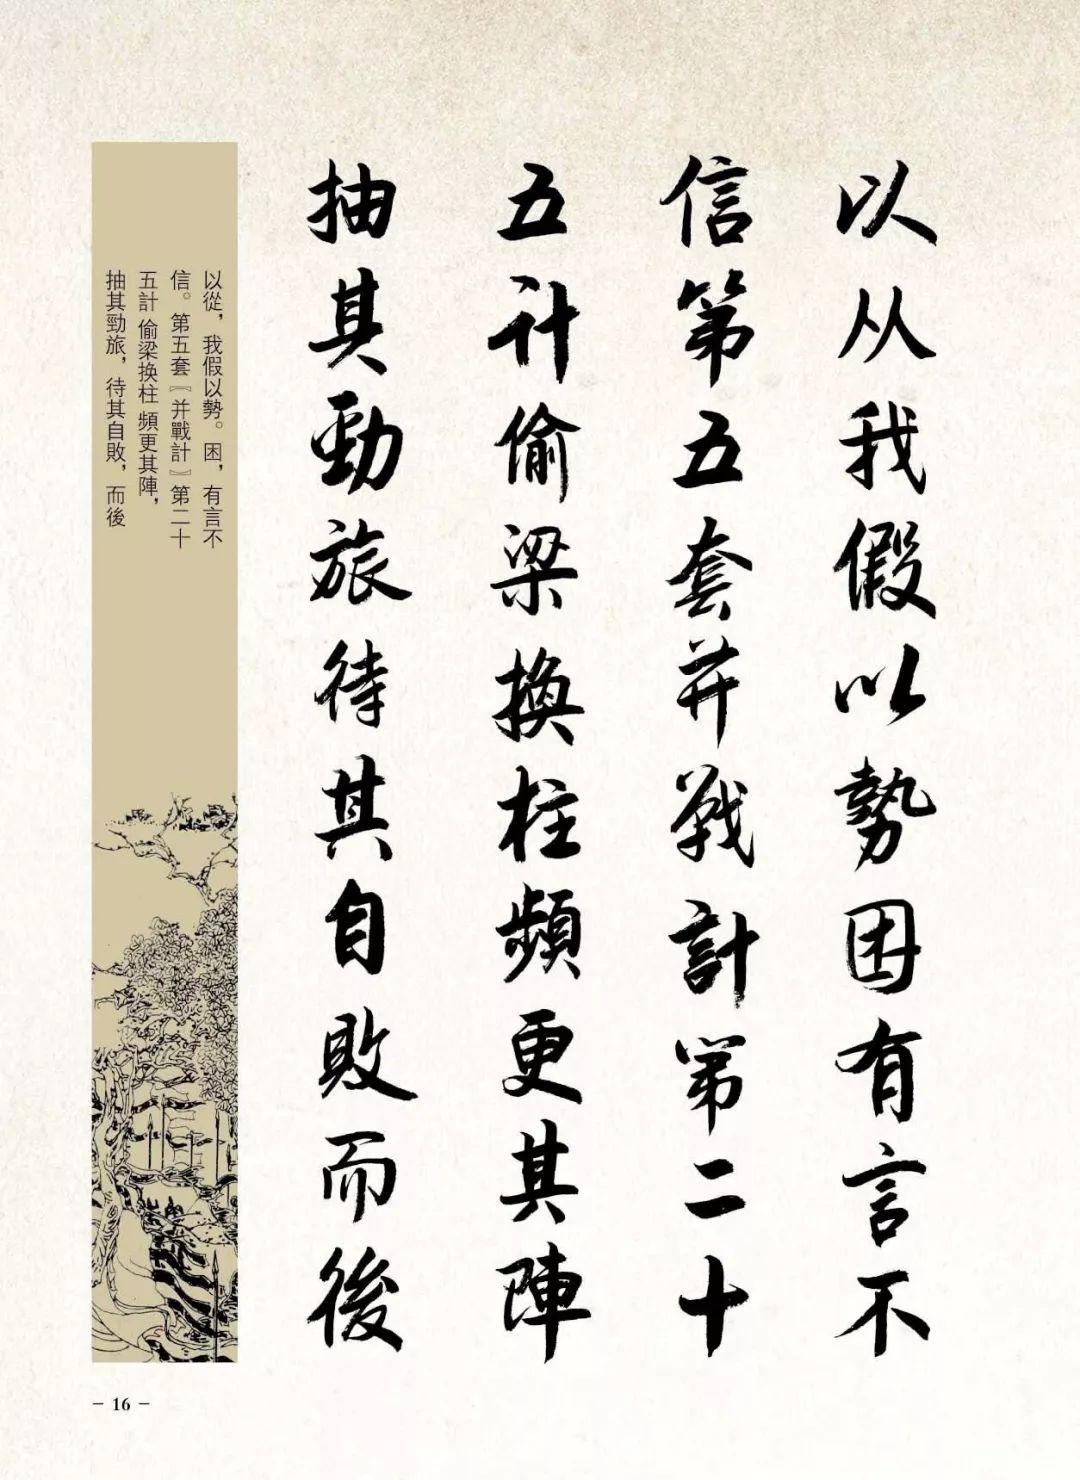 以从我假以勢困有言不
信第五套并戰計第二十
五计偷梁換柱頻更其陣
抽其勁旅待其自敗而後
以從，我假以勢。困，有言不
信。第五套〖并戰計〗第二十
五計 偷梁换柱 頻更其陣，
抽其勁旅，待其自敗，而後
－ 16 －